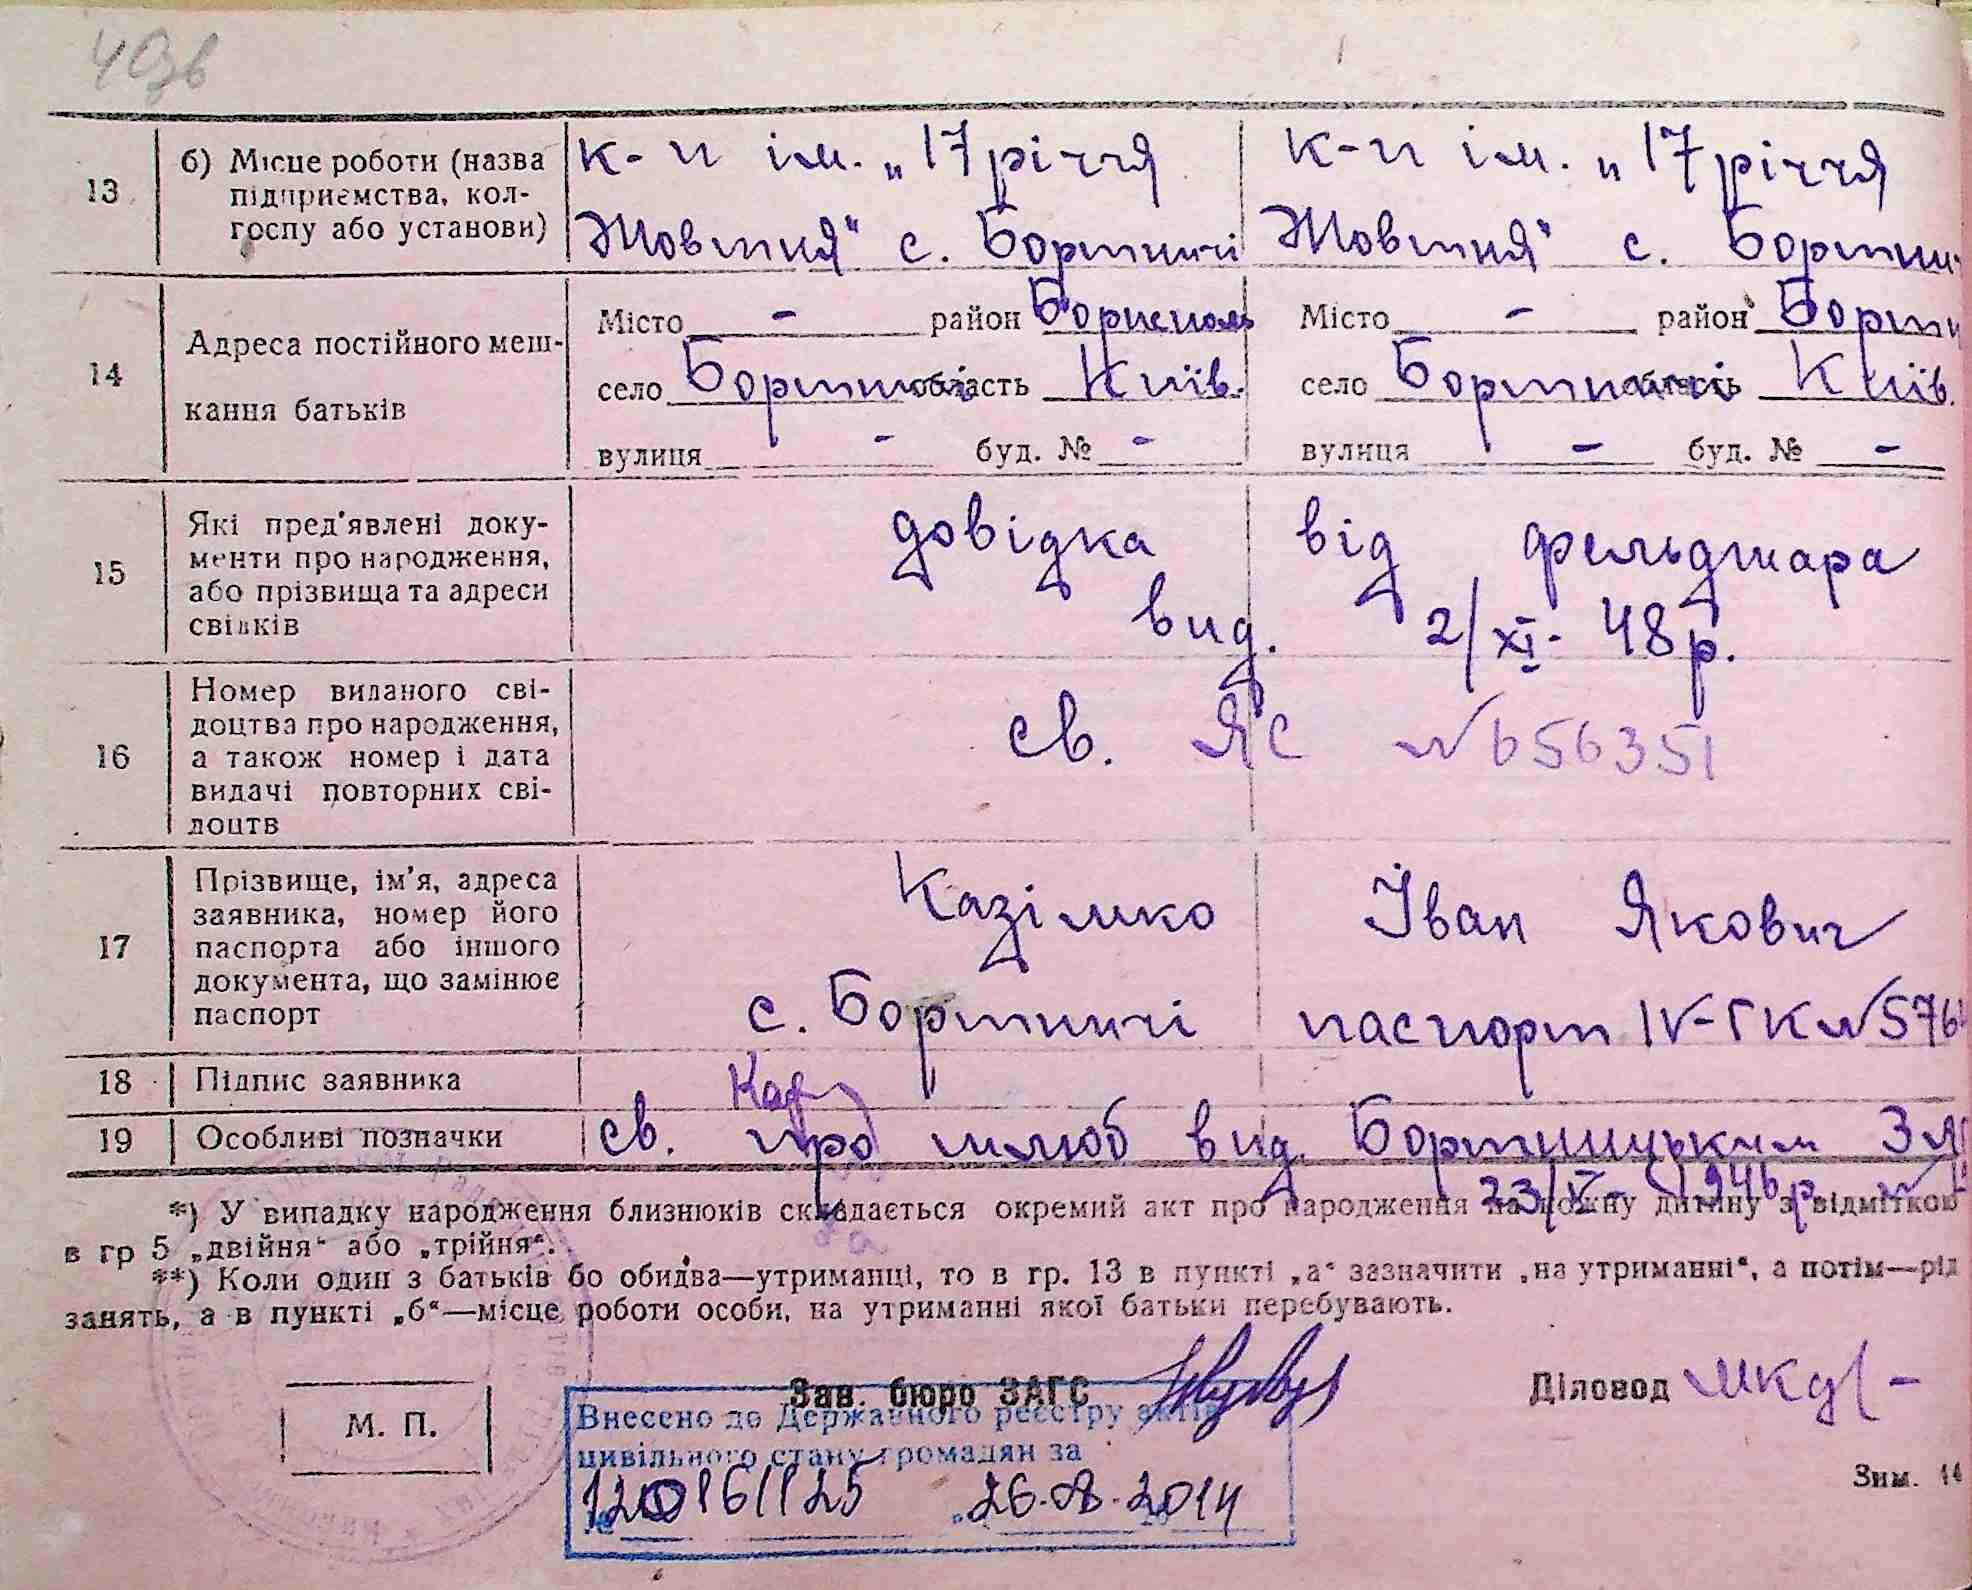 40зв
13 б) Місце роботи (назва підприємства, колгоспу або установи)
к-п ім. „17 річчя Жовтня“ с. Бортничі
к-п ім. „17 річчя Жовтня“ с. Бортни
14 Адреса постійного мешкання батьків
Місто - район Бориспіль
село Бортничі область Київ.
вулиця - буд. № -
Місто - район
село Бортничі область Київ.
вулиця - буд. № -
15 Які пред'явлені документи про народження, або прізвища та адреси свідків
довідка від фельдшара
вид. 2/XI- 48р.
16 Номер виданого свідоцтва про народження, а також номер і дата видачі повторних свідоцтв
св. ЯС № 656351
17 Прізвище, ім'я, адреса заявника, номер його паспорта або іншого документа, що замінює паспорт
Казімко Іван Якович
с. Бортничі паспорт IV-ГК №576
18 Підпис заявника
19 Особливі позначки
св. про шлюб вид. Бортницьким
1946р.
*) У випадку народження близнюків складається окремий акт про народження на кожну дитину з відміткою
в гр 5 „двійня“ або „трійня“.
**) Коли один з батьків бо обидва—утриманці, то в гр. 13 в пункті „а“ зазначити „на утриманні“, а потім—рід
занять, а в пункті „б“—місце роботи особи, на утриманні якої батьки перебувають.
М. П.
Зав. бюро ЗАГС
Діловод
Внесено до Державного реєстру актів
цивільного стану громадян за
№ 120161125 „26.08.2014
Зим. 14